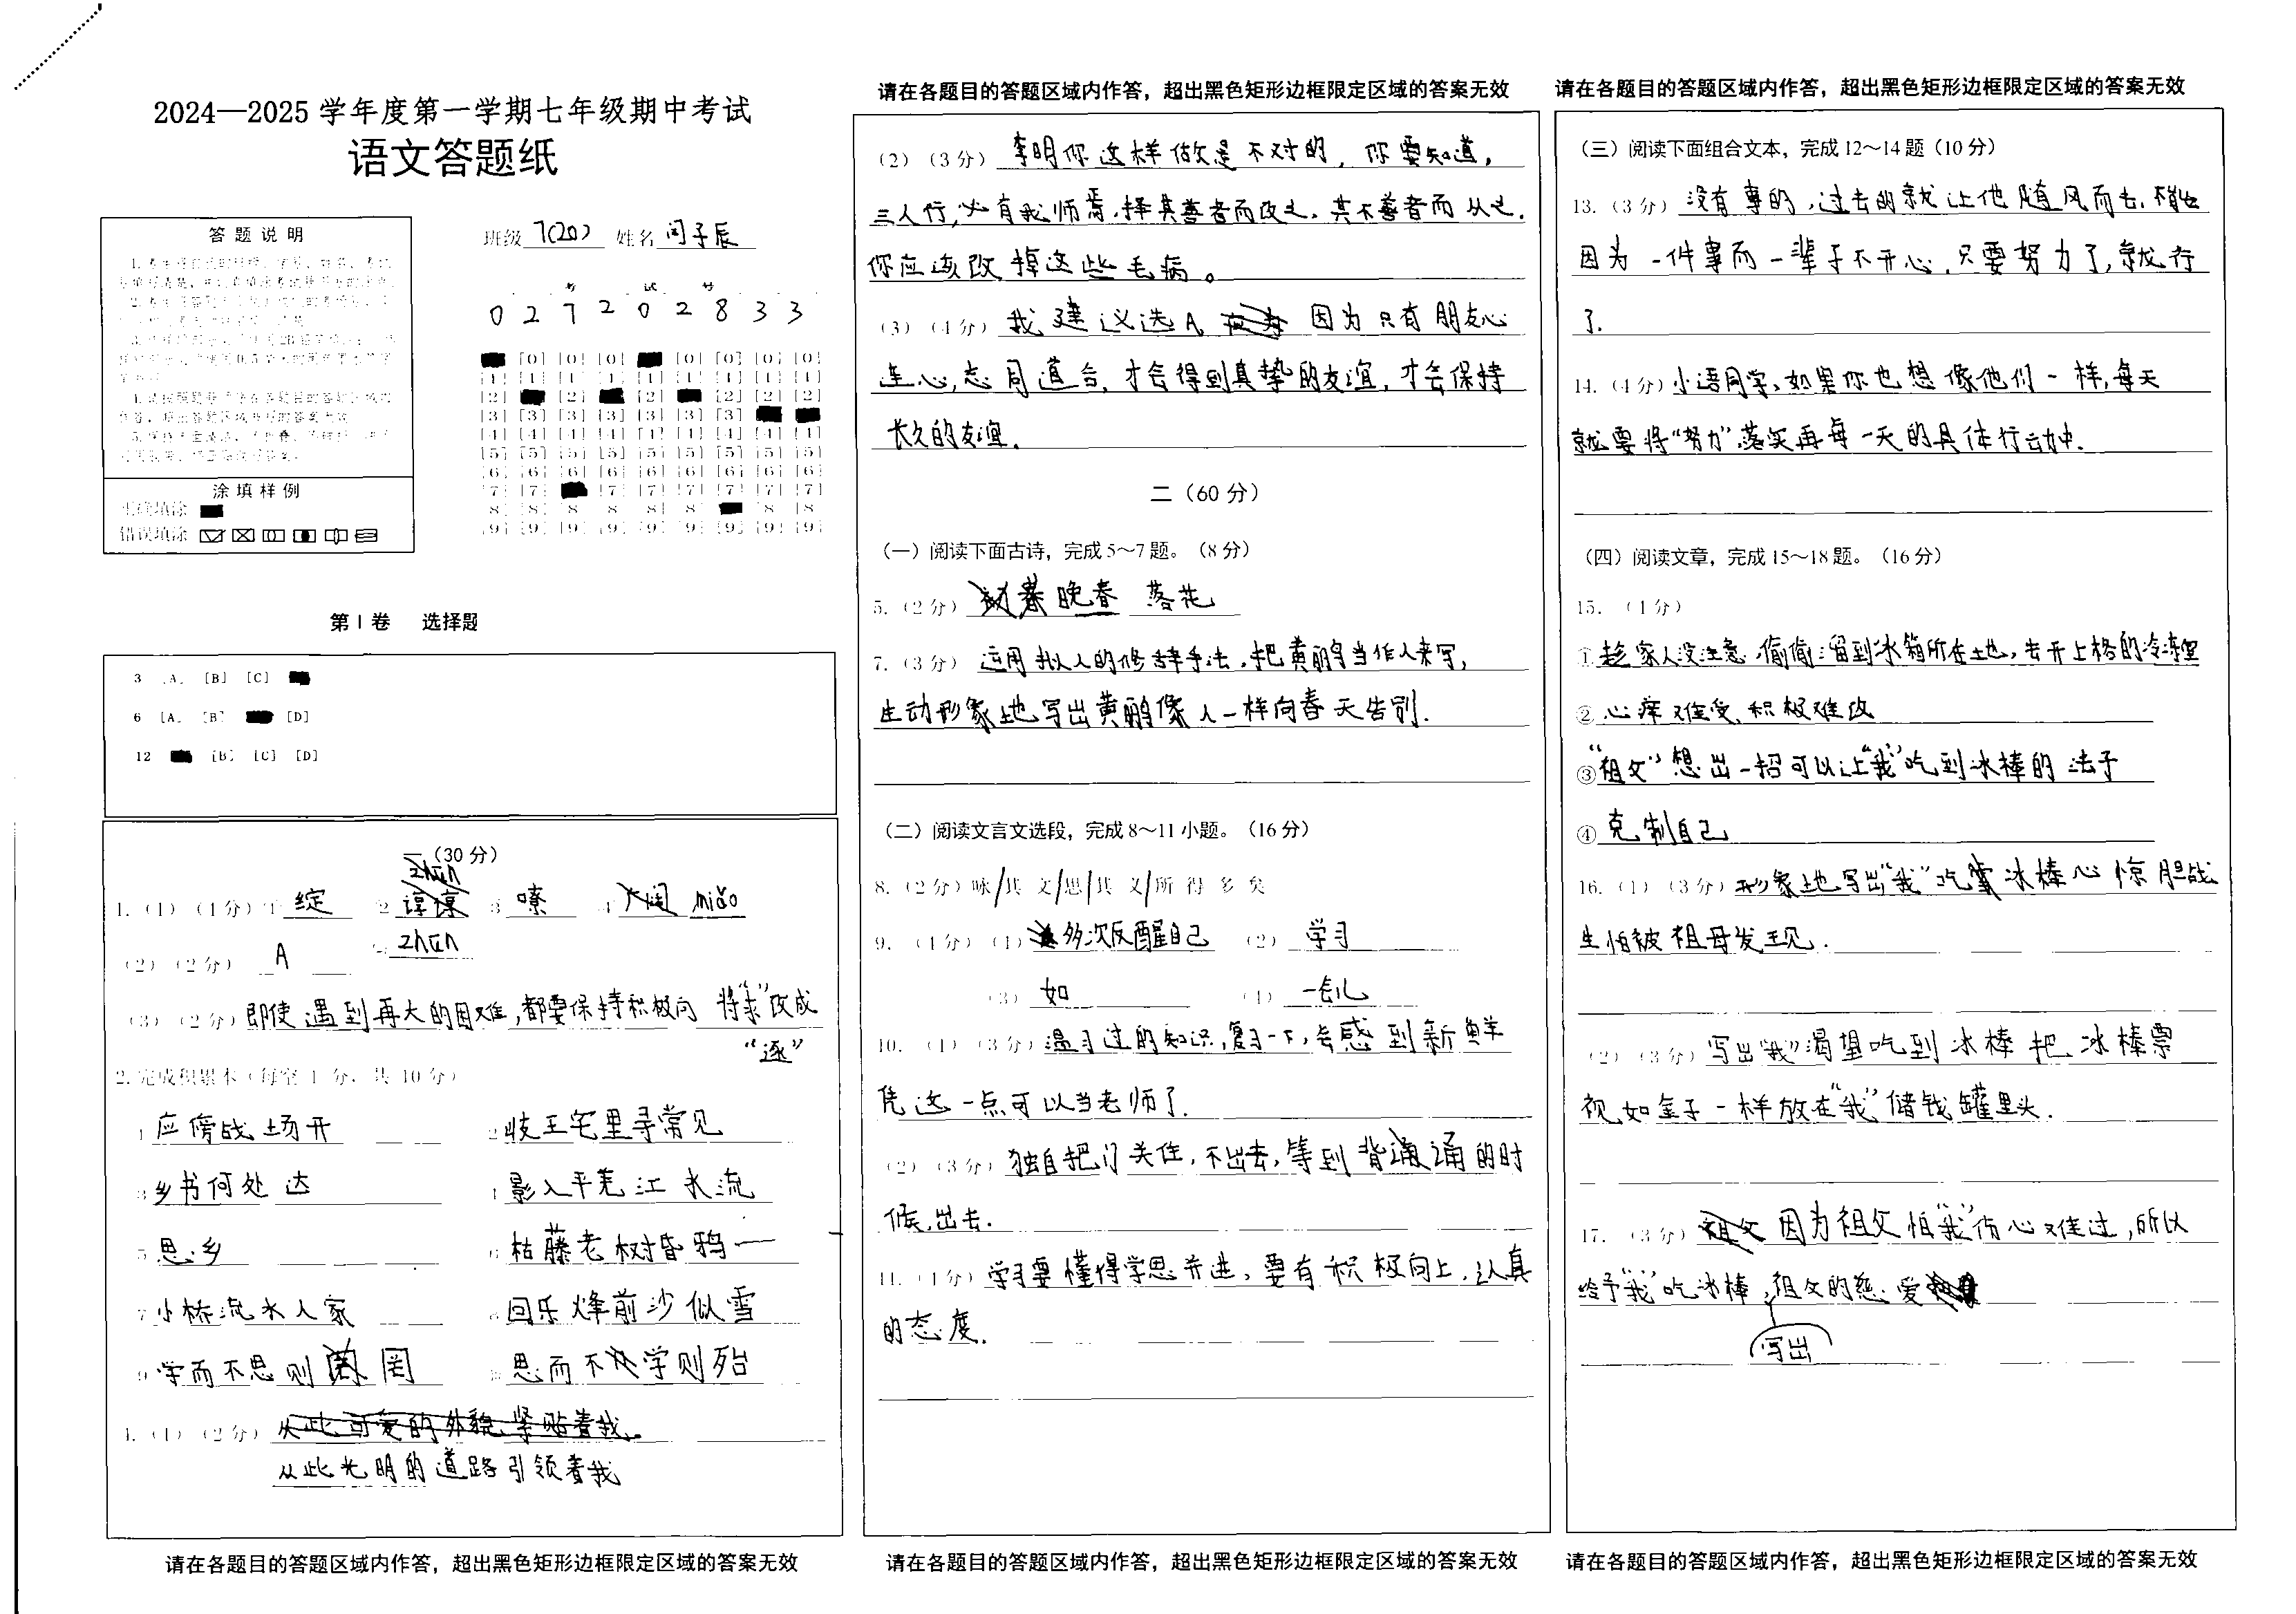 2024—2025 学年度第一学期七年级期中考试
语文答题纸
答题说明
涂填样例
正确填涂
错误填涂
班级 7(20) 姓名 闫子辰
考 试 号
0 2 7 2 0 2 8 3 3
[0] [0] [0] [0] [0] [0] [0]
[1] [1] [1] [1] [1] [1] [1] [1] [1]
[2] [2] [2] [2] [2] [2]
[3] [3] [3] [3] [3] [3] [3]
[4] [4] [4] [4] [4] [4] [4] [4] [4]
[5] [5] [5] [5] [5] [5] [5] [5] [5]
[6] [6] [6] [6] [6] [6] [6] [6] [6]
[7] [7] [7] [7] [7] [7] [7] [7]
[8] [8] [8] [8] [8] [8] [8] [8]
[9] [9] [9] [9] [9] [9] [9] [9] [9]
第Ⅰ卷 选择题
3 [A] [B] [C]
6 [A] [B] [D]
12 [B] [C] [D]
一（30 分）
1.（1）（4分）① 绽 ② zhūn ③ 嗦 ④ miǎo
（2）（2分） A
（3）（2分）即使遇到再大的困难，都要保持积极向 将“求”改成
“逐”
2.完成积累本（每空 1 分，共 10 分）
1 应傍战场开 2 岐王宅里寻常见
3 乡书何处达 4 影入平羌江水流
5 思乡 6 枯藤老树昏鸦
7 小桥流水人家 8 回乐烽前沙似雪
9 学而不思则罔 10 思而不学则殆
4.（1）（2分）从此可爱的外貌紧贴着我。
从此光明的道路引领着我
请在各题目的答题区域内作答，超出黑色矩形边框限定区域的答案无效
请在各题目的答题区域内作答，超出黑色矩形边框限定区域的答案无效
（2）（3分）李明你这样做是不对的，你要知道，
三人行，必有我师焉，择其善者而改之，其不善者而从之.
你应该改掉这些毛病。
（3）（4分）我建议选A 因为只有朋友心
连心，志同道合，才会得到真挚的友谊，才会保持
长久的友谊.
二（60 分）
（一）阅读下面古诗，完成 5～7 题。（8 分）
5.（2分） 晚春 落花
7.（3分） 运用拟人的修辞手法，把黄鹂当作人来写，
生动形象地写出黄鹂像人一样向春天告别.
（二）阅读文言文选段，完成 8～11 小题。（16 分）
8.（2分）咏/其 文/思/其 义/所 得 多 矣
9.（4分）（1）多次反醒自己 （2）学习
（3）如 （4）一会儿
10.（1）（3分）温习过的知识，复习一下，会感到新鲜
凭这一点可以当老师了.
（2）（3分）独自把门关住，不出去，等到背诵的时
候，出去.
11.（4分）学习要懂得学思并进，要有积极向上，认真
的态度.
请在各题目的答题区域内作答，超出黑色矩形边框限定区域的答案无效
请在各题目的答题区域内作答，超出黑色矩形边框限定区域的答案无效
（三）阅读下面组合文本，完成 12～14 题（10 分）
13.（3分）没有事的，过去的就让他随风而去，不能
因为一件事而一辈子不开心，只要努力了，就行
了.
14.（4分）小语同学，如果你也想像他们一样，每天
就要将“努力”落实再每一天的具体行动中.
（四）阅读文章，完成 15～18 题。（16 分）
15.（4分）
①趁家人没注意，偷偷溜到冰箱所在地，去开上格的冷冻室
②心痒难受，积极难改
③“祖父”想出一招可以让“我”吃到冰棒的法子
④克制自己
16.（1）（3分）形象地写出“我”吃冰棒心惊胆战
生怕被祖母发现.
（2）（3分）写出“我”渴望吃到冰棒把冰棒票
视如金子一样放在“我”储钱罐里头.
17.（3分）因为祖父怕“我”伤心难过，所以
给予“我”吃冰棒，写出祖父的慈爱
请在各题目的答题区域内作答，超出黑色矩形边框限定区域的答案无效